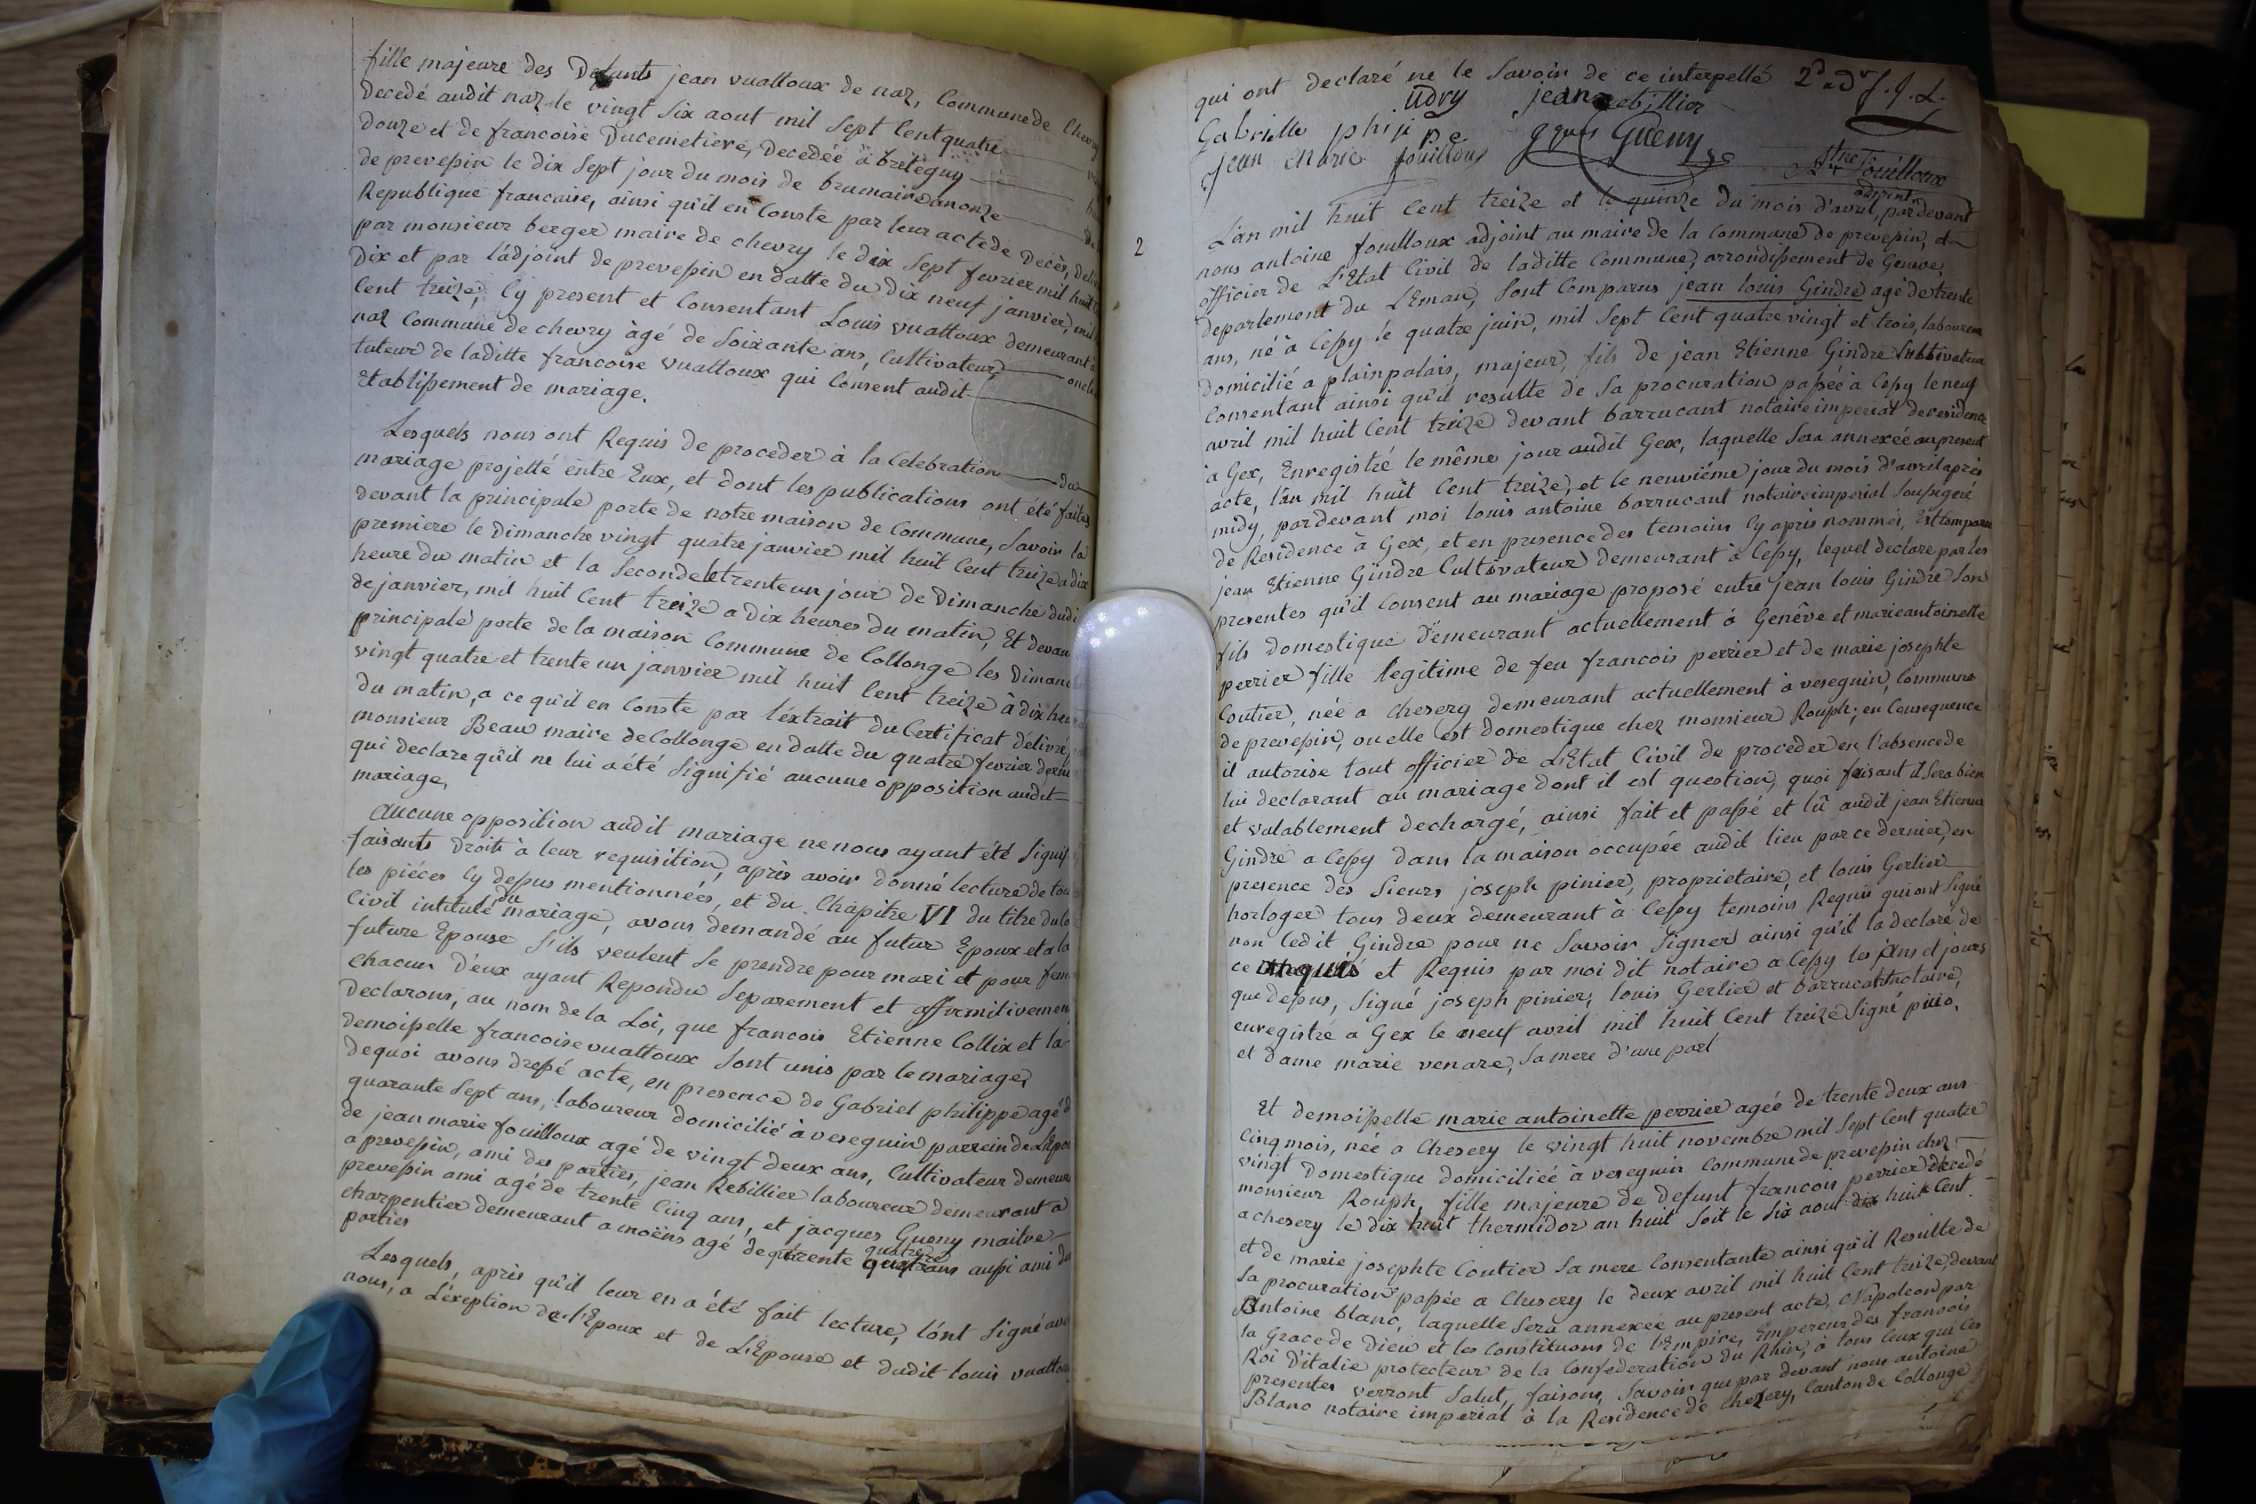 fille majeure des Defunts jean vuattoux de naz, Commune de Chevry
Decedé audit naz le vingt six aout mil sept Cent quatre
Douze et de francoise Ducemetiere, Decedée à bretegny
de prevessin le Dix sept jour du mois de brumaire an onze
Republique francaise, ainsi qu'il en Conste par leur acte de Decès,
par monsieur berger maire de chevry le dix sept fevrier mil huit
Dix et par l'adjoint de prevessin en datte du Dix neuf janvier, mil
Cent treize, Cy present et Consentant Louis vuattoux demeurant
naz Commune de chevry àgé de soixante ans, Cultivateur, oncle
tuteur de laditte francoise vuattoux qui Consent audit
Etablissement de mariage.
Lesquels nous ont Requis de proceder à la Celebration du
mariage projetté entre Eux, et dont les publications ont été faites
devant la principale porte de notre maison de Commune, Savoir la
premiere le Dimanche vingt quatre janvier mil huit Cent treize a dix
heure du matin et la seconde le trente un jour de Dimanche dudit
de janvier, mil huit Cent treize a dix heures du matin, Et devant
principale porte de la maison Commune de Collonge les Dimanches
vingt quatre et trente un janvier mil huit Cent treize à dix heures
du matin, a ce qu'il en Conste par l'éxtrait du Certificat délivré
monsieur Beau maire de Collonge en datte du quatre fevrier dernier
qui declare qu'il ne lui a été signifié aucune opposition audit
mariage,
Aucune opposition audit mariage ne nous ayant été signifiée
faisants droits à leur requisition, après avoir donné lecture de tou
les piéces Cy dessus mentionnées, et du Chapitre VI du titre du Co
Civil intitulé du mariage, avons demandé au futur Epoux et a la
future Epouse s'ils veulent se prendre pour mari et pour fem
chacun d'eux ayant Repondu separement et affirmitivement
declarons, au nom de la Loi, que francois Etienne Collix et la
demoisselle francoise vuattoux sont unis par le mariage,
de quoi avons dressé acte, en presence de Gabriel philippe agé d
quarante sept ans, laboureur domicilié à veseguin parrein de L'Epou
de jean marie fouilloux agé de vingt deux ans, Cultivateur demeurant
a prevessin, ami des parties, jean Rebillier laboureur demeurant à
prevessin ami agé de trente Cinq ans, et jacques Gueny maitre
charpentier demeurant a moëns agé de quarente quatre ans aussi ami des
parties
Lesquels, après qu'il leur en a été fait lecture, l'ont signé avec
nous, a L'éxeption de l'Epoux et de L'Epouse et dudit louis vuattoux
qui ont declaré ne le savoir de ce interpellé
udry jean rebillier
Gabrielle phiji pe
jean Marie fouilloux Gueny
fouilloux
adjoint
2
L'an mil huit Cent treize et le quinze du mois d'avril, par devant
nous antoine fouilloux adjoint au maire de la Commune de prevessin, et
officier de L'Etat Civil de laditte Commune, arrondissement de Geneve
departement du LEman, sont Comparus jean louis Gindre agé de trente
ans, né à Cessy le quatre juin, mil sept Cent quatre vingt et trois, laboureur
domicilié a plainpalais, majeur, fils de jean Etienne Gindre Cultivateur
Consentant ainsi qu'il resulte de sa procuration passée à Cessy le neuf
avril mil huit Cent treize devant barrucant notaire imperial de residence
à Gex, Enregistré le même jour audit Gex, laquelle sera annexée au present
acte, L'an mil huit Cent treize, et le neuviéme jour du mois d'avril après
midy, pardevant moi louis antoine barrucant notaire imperial soussigné
de Residence à Gex, et en presence des temoins Cy après nommés, Est Comparu
jean Etienne Gindre Cultivateur demeurant à Cessy, lequel declare par les
presentes qu'il Consent au mariage proposé entre jean louis Gindre son
fils domestique demeurant actuellement à Genêve et marie antoinette
perrier fille legitime de feu francois perrier et de marie josephte
Coutier, née a chesery demeurant actuellement à veseguin, Commune
de prevessin, ou elle est domestique chez monsieur Rouph; en Consequence
il autorise tout officier de L'Etat Civil de proceder en l'absence de
lui declarant au mariage dont il est question, quoi faisant il sera bien
et valablement dechargé, ainsi fait et passé et lû audit jean Etienne
Gindre a Cessy dans la maison occupée audit lieu par ce dernier, en
presence des sieurs joseph pinier, proprietaire, et louis Gerlier
horloger tous deux demeurant à Cessy temoins Requis qui ont signé
non ledit Gindre pour ne savoir signer ainsi qu'il l'a declaré de
ce enquis et Requis par moi dit notaire a Cessy les jans et jours
que dessus, signé joseph pinier, louis Gerlier et barrucant notaire,
enregistré a Gex le neuf avril mil huit Cent treize signé
et dame marie venare, sa mere d'une part
Et demoisselle marie antoinette perrier agée de trente deux ans
Cinq mois, née a Chesery le vingt huit novembre mil sept Cent quatre
vingt domestique domiciliée à veseguin Commune de prevessin chez
monsieur Rouph, fille majeure de defunt francois perrier decedé
a chesery le dix huit thermidor an huit soit le six aout dix huit Cent
et de marie josephte Coutier sa mere Consentante ainsi qu'il Resulte de
sa procuration passée a Chesery le deux avril mil huit Cent treize, devant
Antoine blanc, laquelle sera annexée au present acte, Napoleon par
la Grace de Dieu et les Constituons de l'Empire, Empereur des francois
Roi D'italie protecteur de la Confederation du Rhin, à tous Ceux qui les
presentes verront Salut, faisons, savoir que par devant nous antoine
Blanc notaire imperial à la Residence de chezery, Canton de Collonge